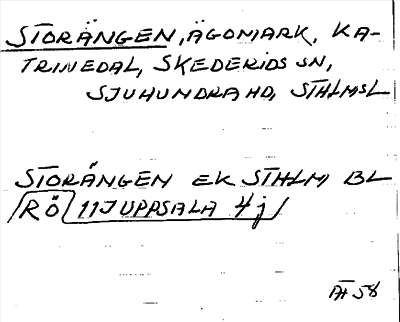 STORÄNGEN, ÄGOMARK, KA-
TRINEDAL, SKEDERIDS SN,
SJUHUNDRA HD, STHLMSL
STORÄNGEN EK STHLM BL
RÖ 11J UPPSALA 4j
ÄH 58